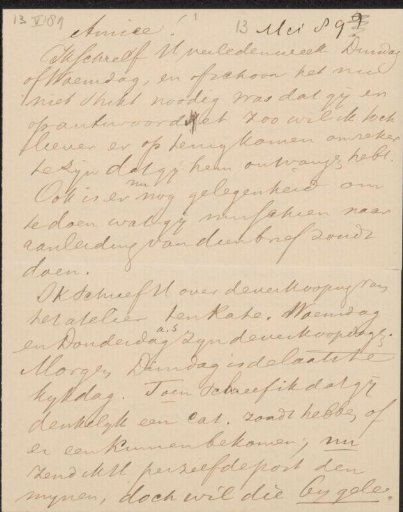 13 V 89
13 Mei 89
Amice!
Ik schreef U verleden week Dinsdag
of Woensdag, en ofschoon het nu
niet strikt noodig was dat gij er
op antwoorddet zoo wil ik toch
liever er op terugkomen om zeker
te zijn dat gij hem ontvangen hebt.
Ook is er nu nog gelegenheid om
te doen wat gij misschien naar
aanleiding van dien brief zoudt
doen.
Ik schreef U over de verkooping van
het atelier ten Kate. Woensdag
en Donderdag a.s. zijn de verkoopdagen.
Morgen Dinsdag is de laatste
kijkdag. Toen schreef ik dat gij
denkelijk een Cat. zoudt hebben of
er een kunnen bekomen; nu
zend ik U per zelfde post den
mijnen, doch wil die